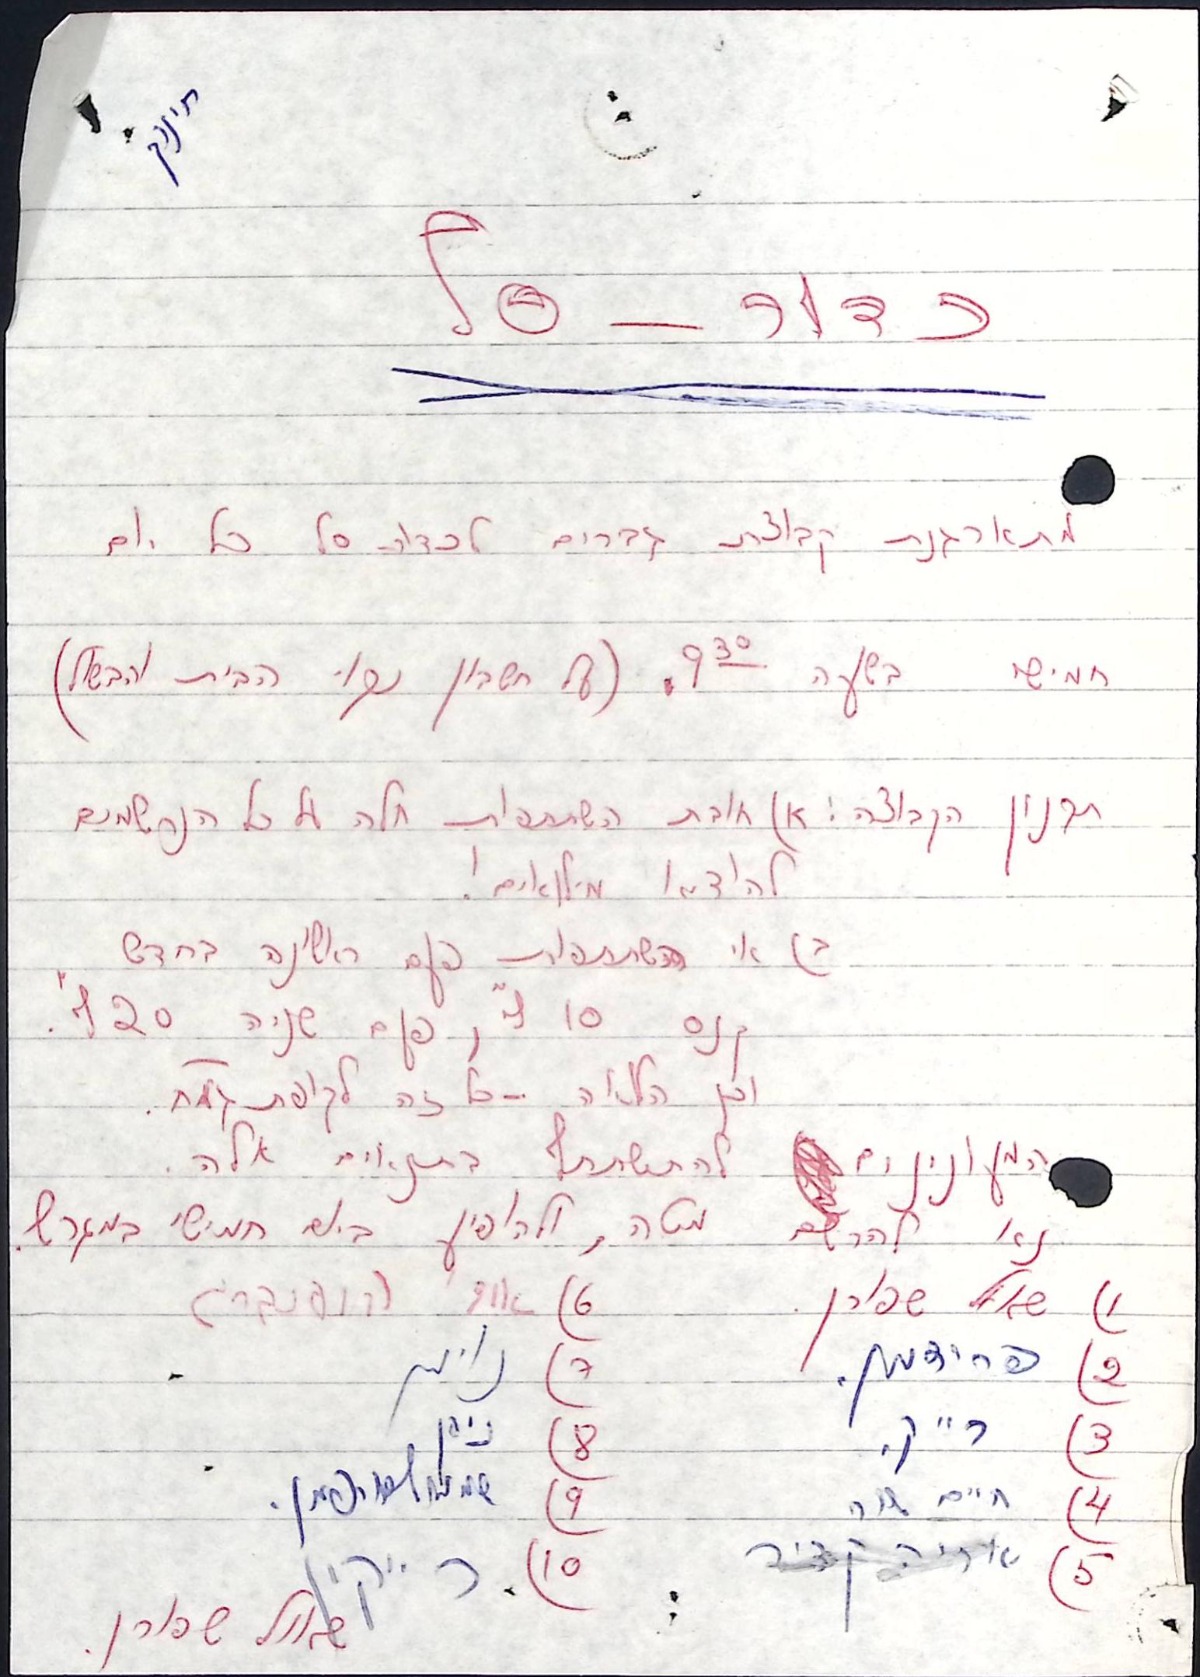 חינוך
כדור - סל
מתארגנת קבוצת גברים לכדור סל כל יום
חמישי בשעה 9.30 (על חשבון נקוי הבית והבשול)
תקנון הקבוצה: א) חובת השתתפות חלה על כל הנרשמים
להוציא מילואים!
ב) אי השתתפות פעם ראשונה בחדש
קנס 10 ל"י, פעם שניה 20 ל"י.
וכן הלאה - כל זה לקופת גמ"ח.
המעונינים להשתתף בתנאים אלה.
נא להרשם מטה, ולהופיע ביום חמישי במגרש.
1) שאול שפורן.
2) פרידמן.
3) רייק.
4) חיים
5) אריה
6) אודי הופנברג
7) נוימן
8)
9) שמואל
10)
שאול שפורן.